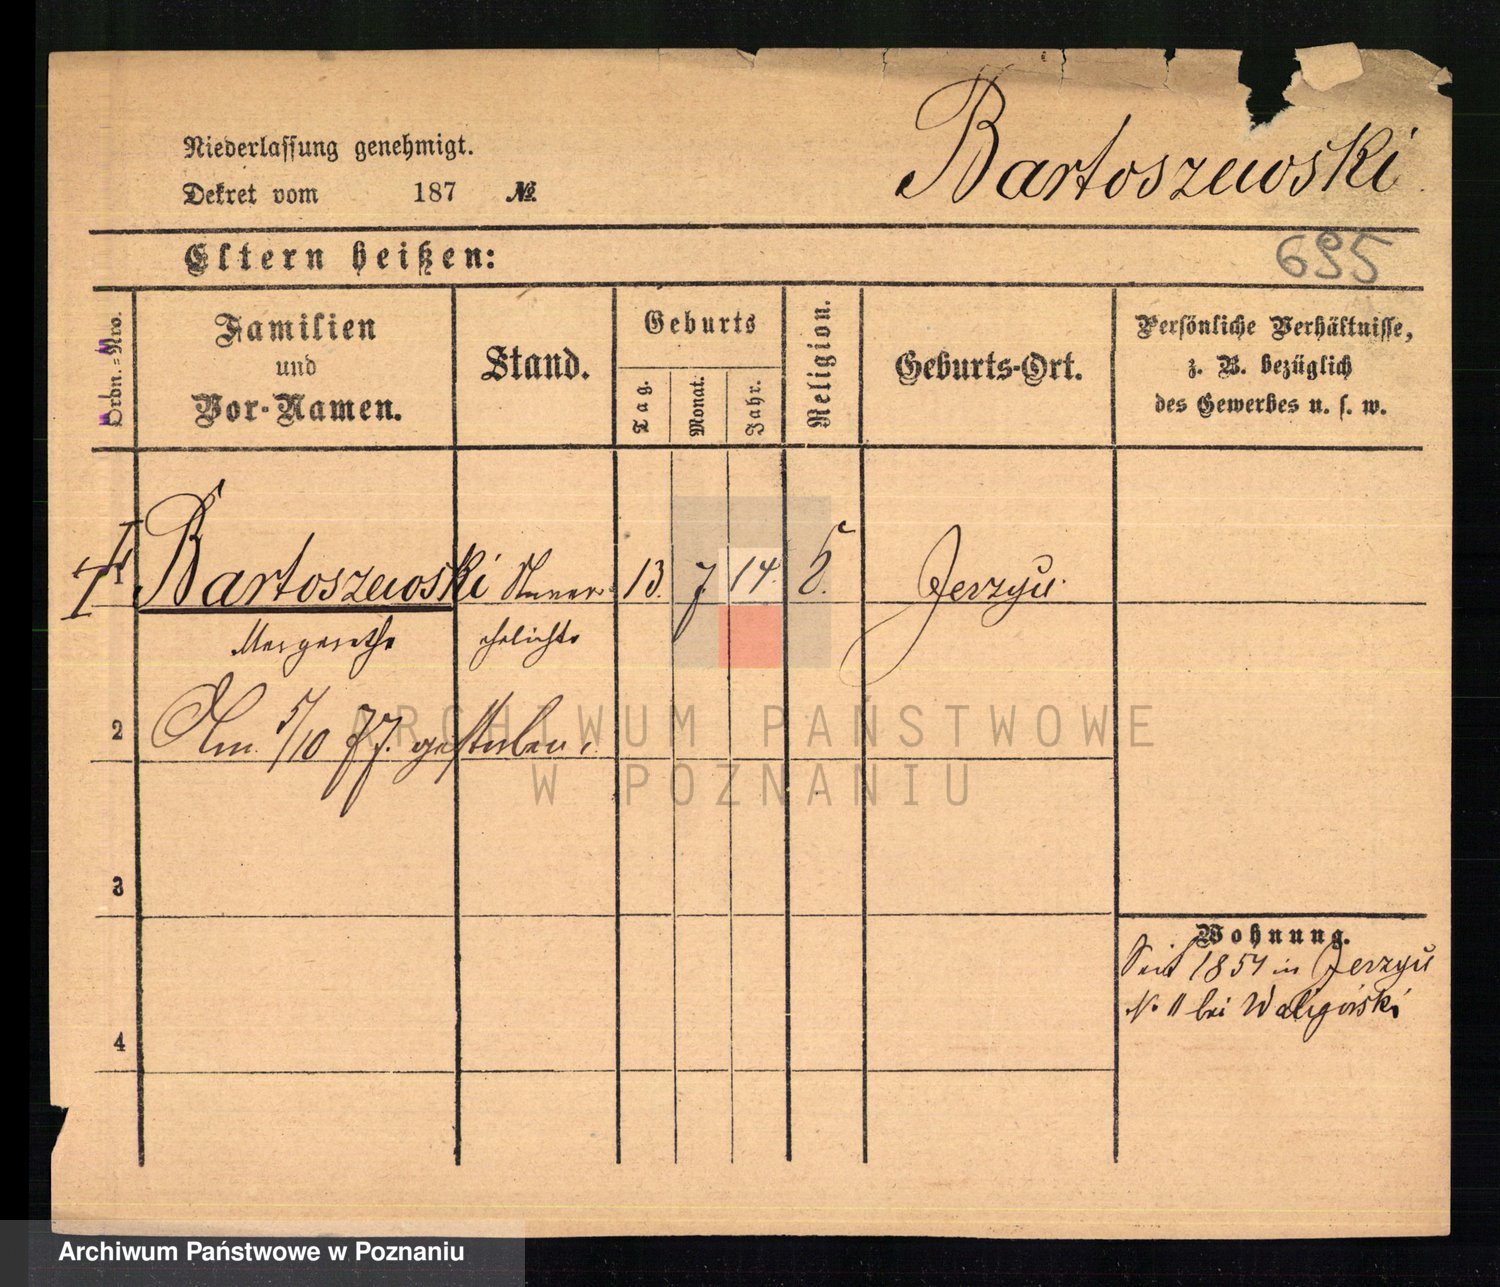 Bartoszewski
Niederlassung genehmigt.
Dekret vom 187 №
Eltern heißen:
695
Ordn.-Nro.
Familien
und
Vor-Namen.
Stand.
Geburts
Tag.
Monat.
Jahr.
Religion.
Geburts-Ort.
Persönliche Verhältnisse,
z. B. bezüglich
des Gewerbes u. s. w.
1 Bartoszewski 13. 7 14. Jerzyce
Margarethe ehelichte
2 Am 5/10 77. gestorben.
3
4
Wohnung.
Seit 1854 in Jerzyce
No 11 bei Waligórski
ARCHIWUM PAŃSTWOWE
W POZNANIU
Archiwum Państwowe w Poznaniu